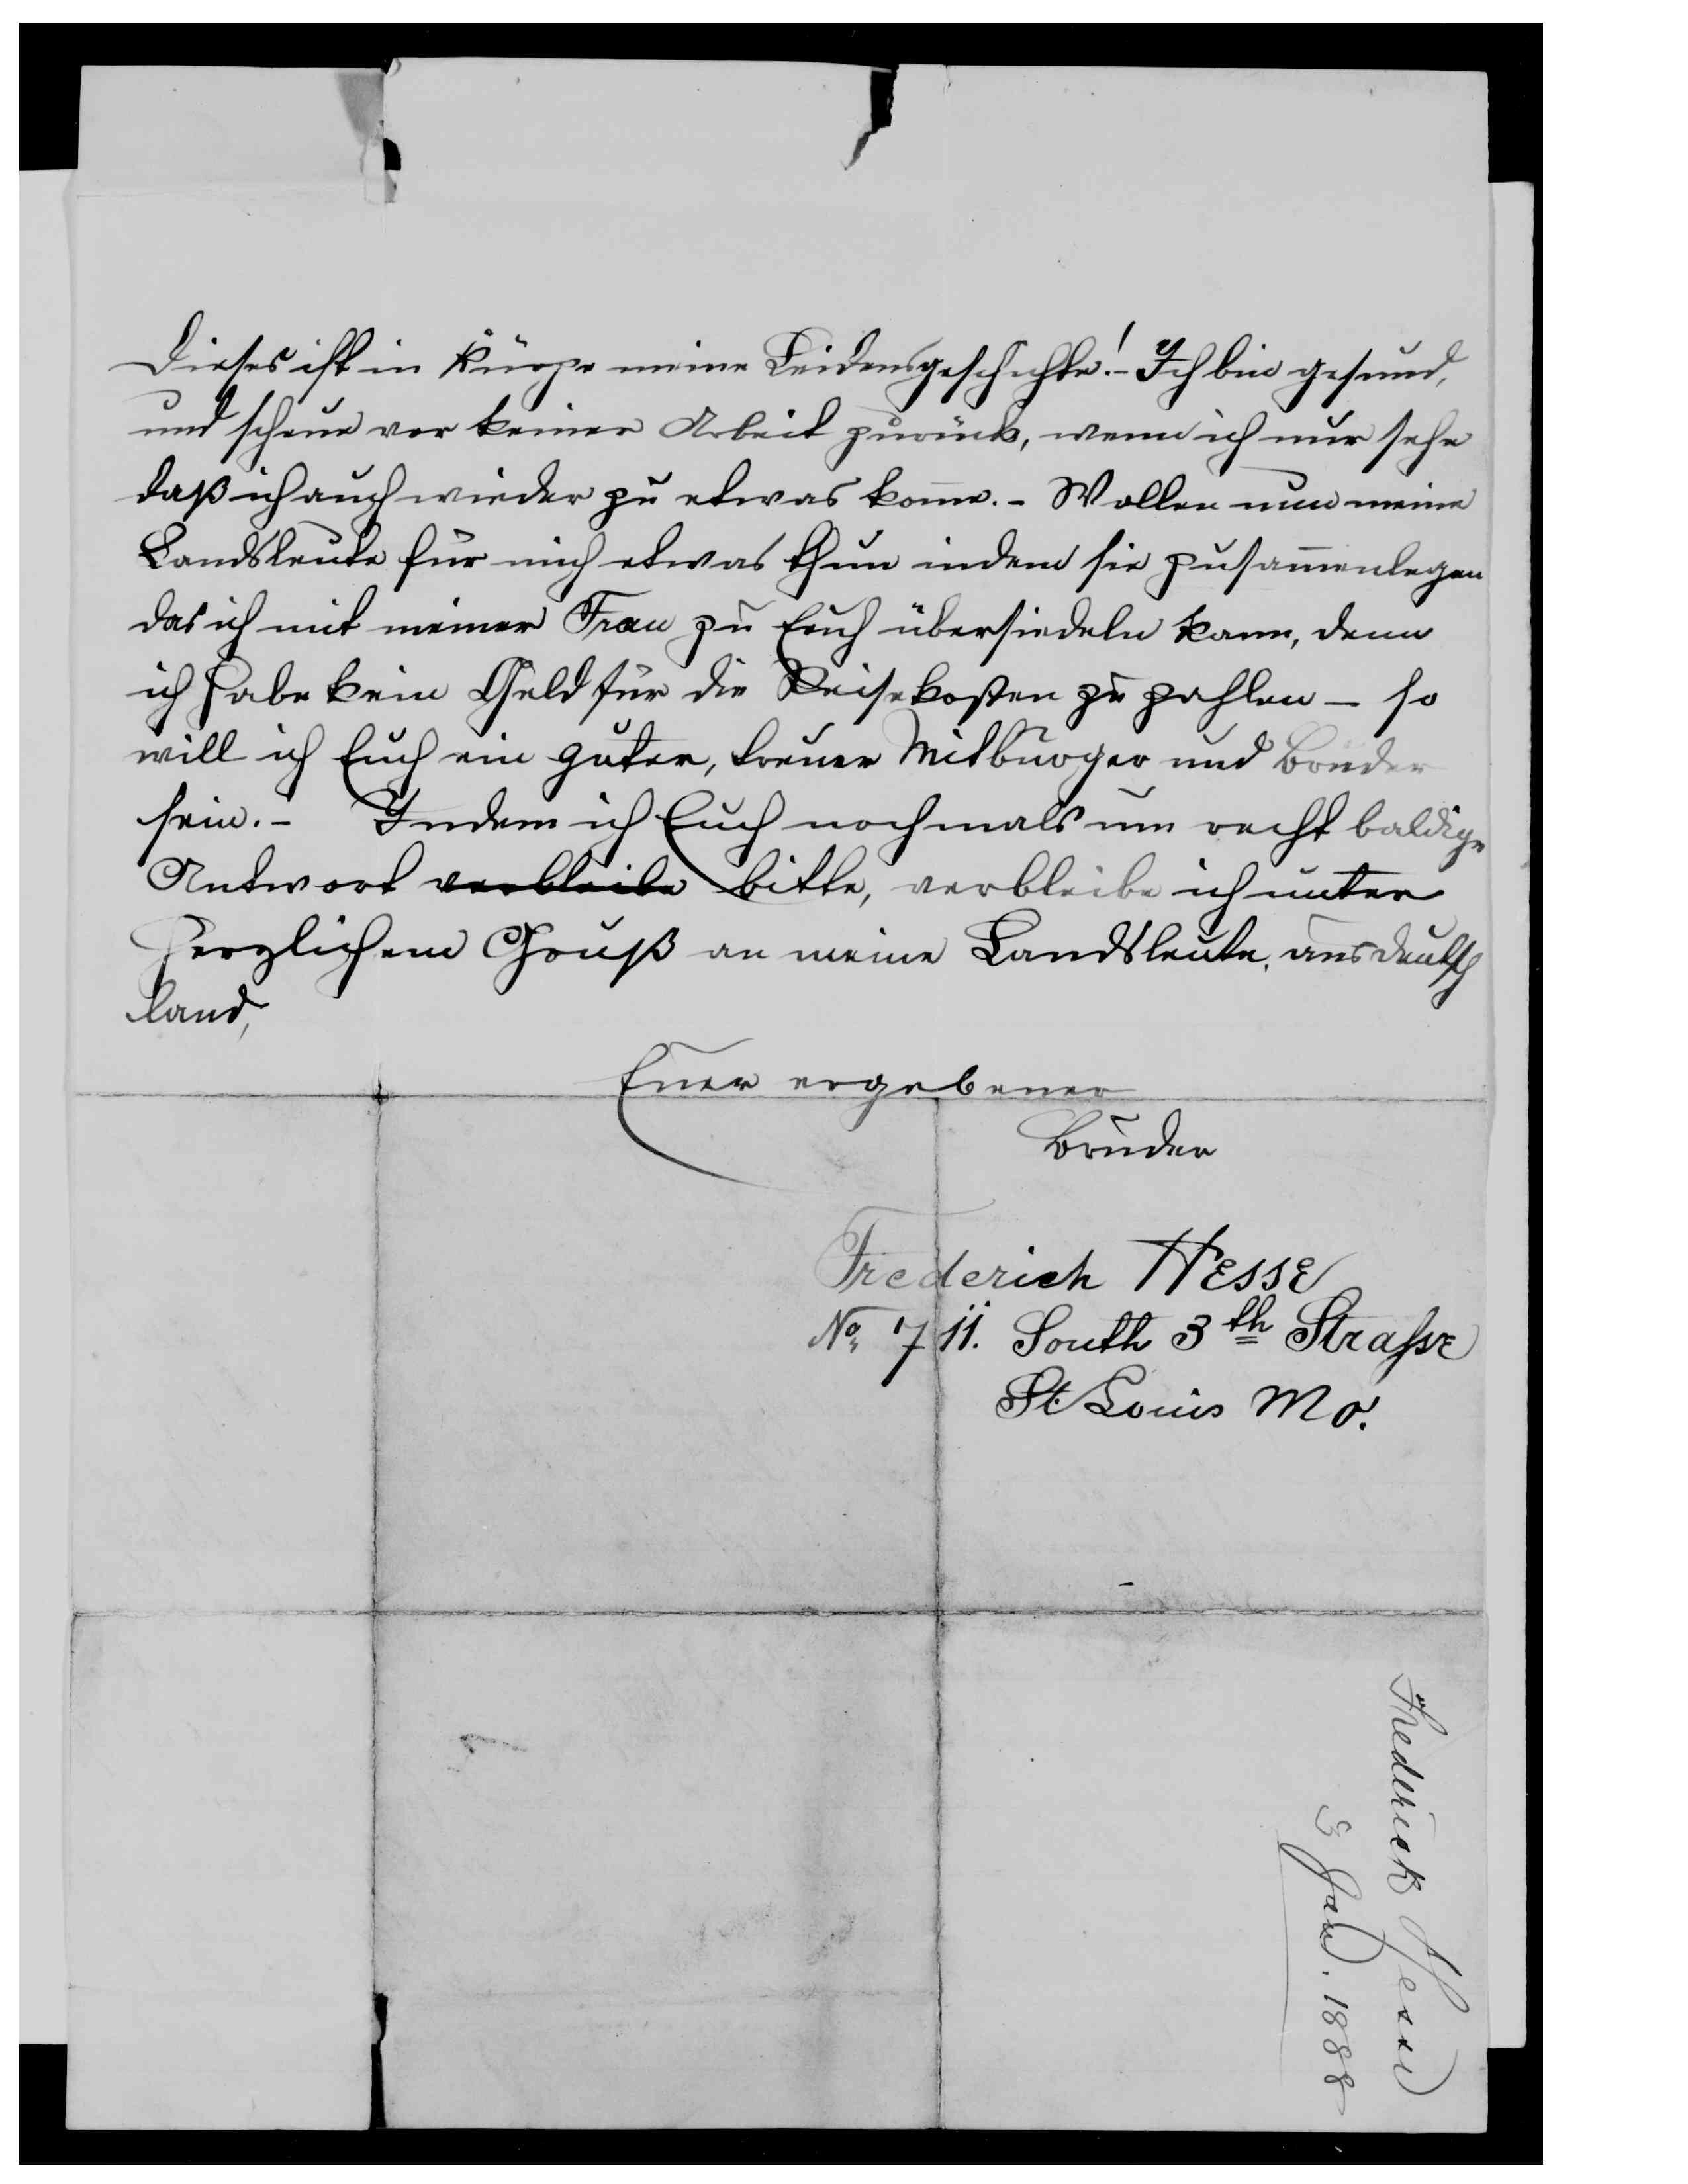 Dieses ist in Kürze meine Leidensgeschichte! – Ich bin gesund,
und scheue vor keiner Arbeit zurück, wenn ich nur sehe
daß ich auch wieder zu etwas kom̄e. – Wollen nun meine
Landsleute für mich etwas thun indem sie zusam̄enlegen
das ich mit meiner Frau zu Euch übersiedeln kann, denn
ich habe kein Geld für die Reisekosten zu zahlen – so
will ich Euch ein guter, treuer Mitbürger und Bruder
sein. – Indem ich Euch nochmals um recht baldige
Antwort verbleibe bitte, verbleibe ich unter
herzlichem Gruß an meine Landsleute, aus Deutsch
land,
Euer ergebener
Bruder
Frederich Hesse
No. 711. South 3th Strasse
St. Louis Mo.
Frederick Hesse
5 Jan. 1888